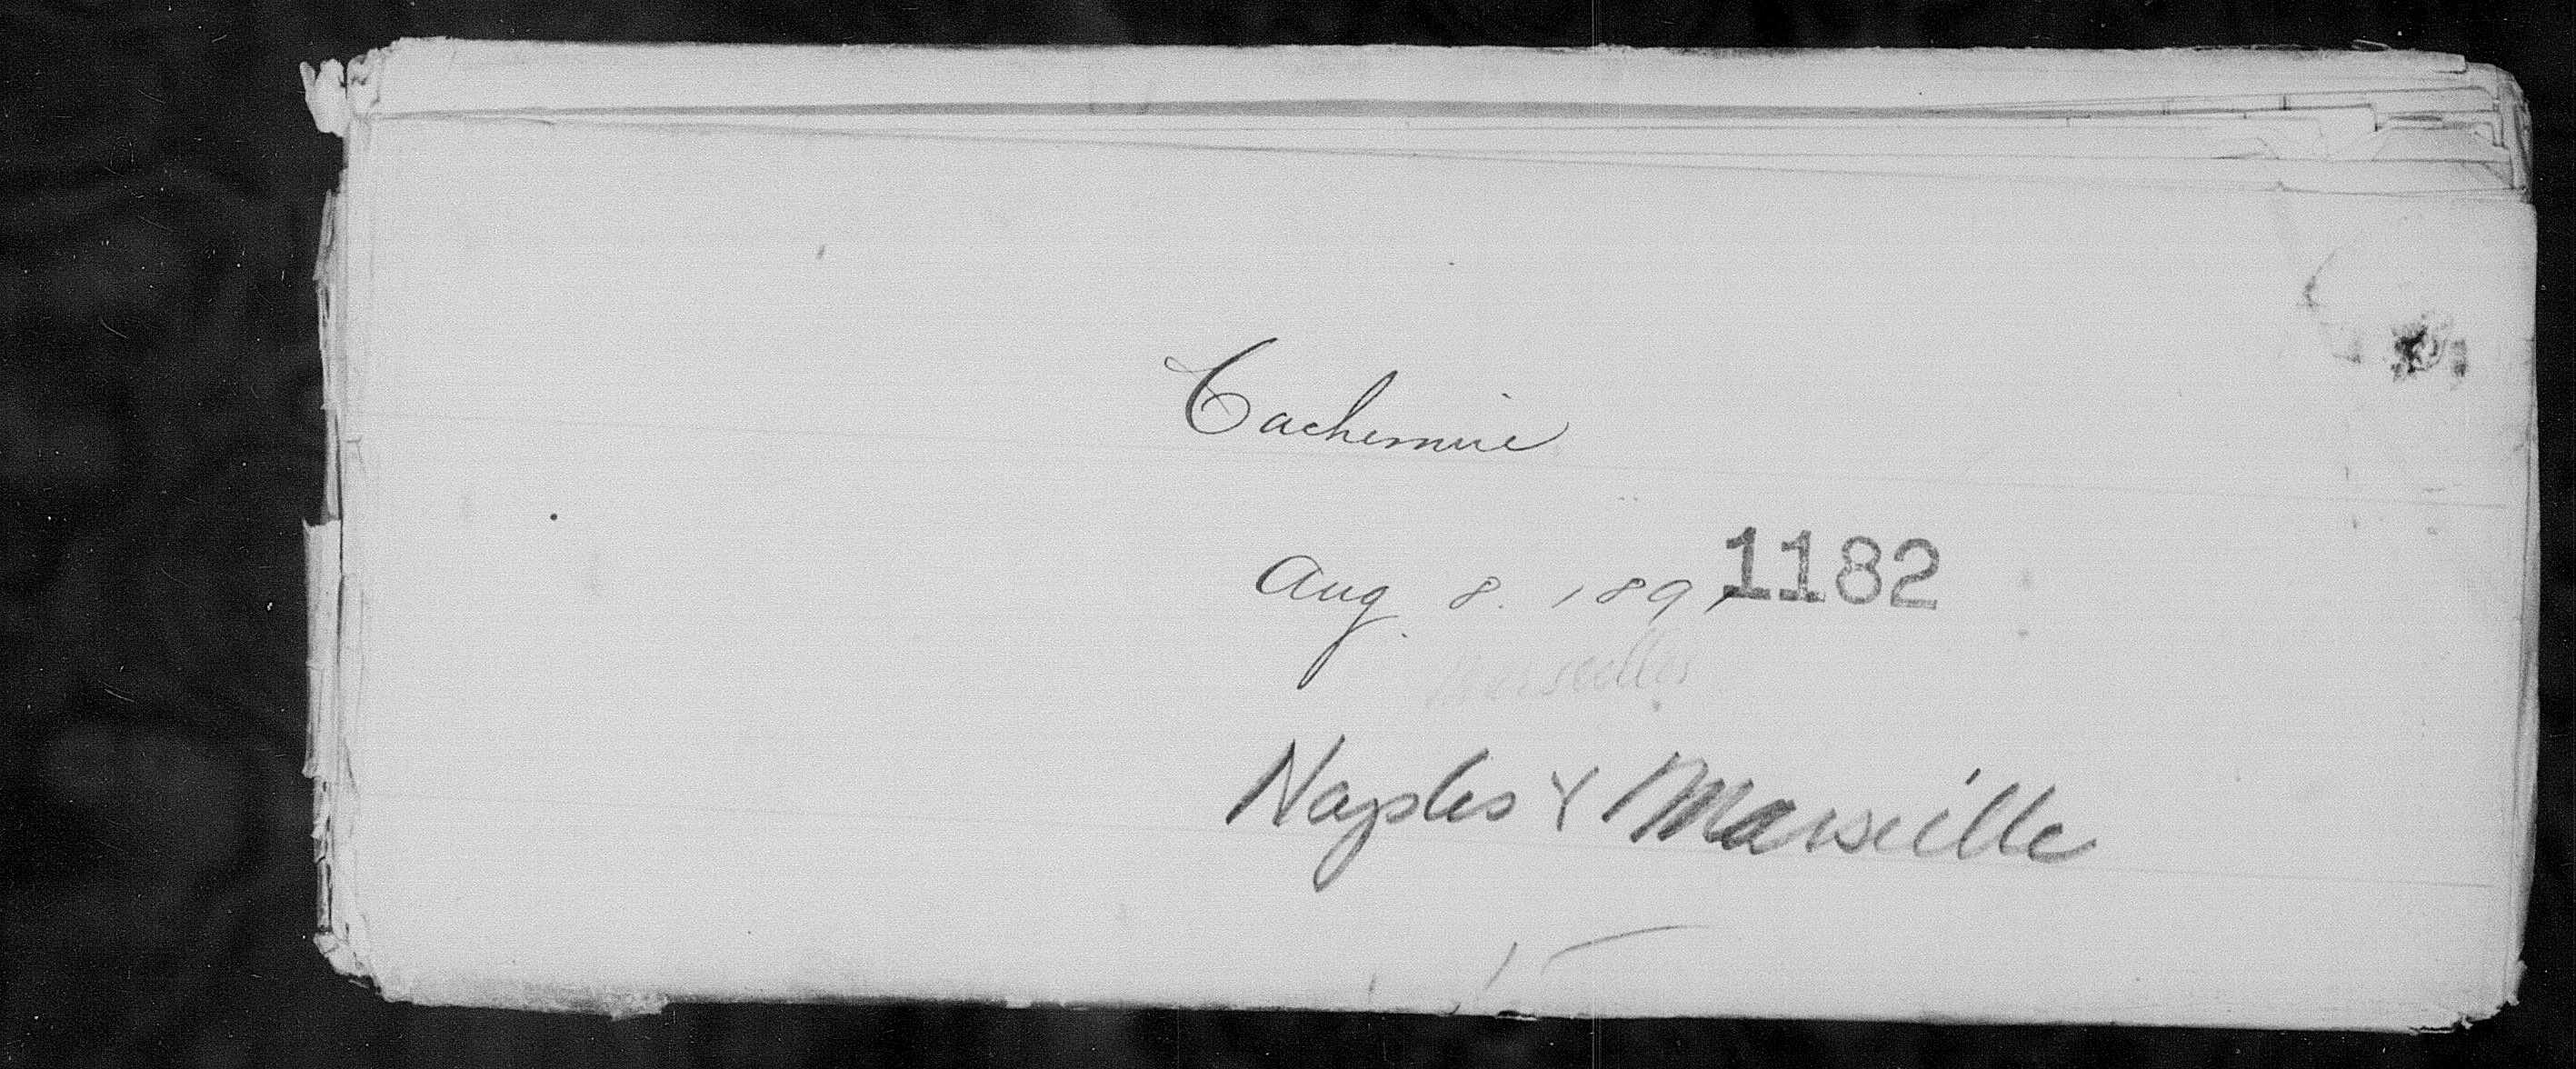 Cachemire
Aug 8. 1891 1182
Marseilles
Naples & Marseille